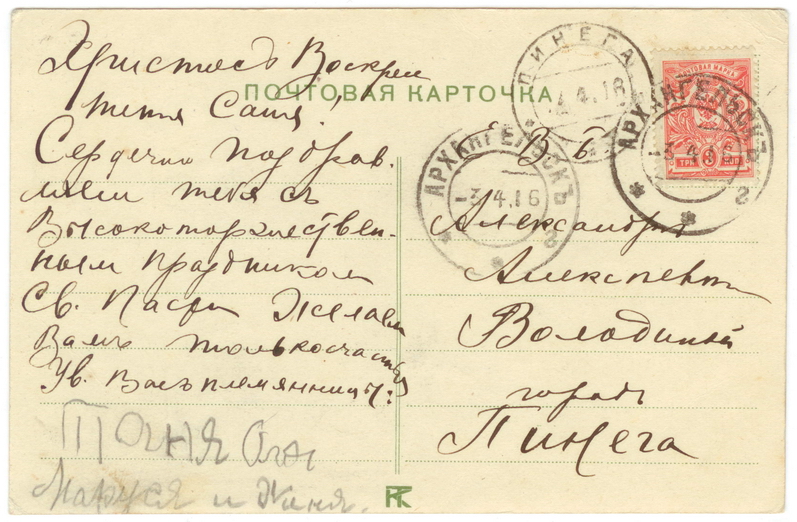 Христосъ Воскрес
тетя Саша!
Сердечно поздрав.
ляем тебя съ
Высокоторжествен-
ным праздником
Св. Пасхи Желаем
Вамъ только счастья
Ув. Васъ племянницы:
Таня Оля
Маруся и Женя.
ПОЧТОВАЯ КАРТОЧКА
ПИНЕГА
4.16
АРХАНГЕЛЬСКЪ
-3.4.16
2
ПОЧТОВАЯ МАРКА
ТРИ 3 КОП
АРХАНГЕЛЬСКЪ
-3.4.16
2
Е. В. Б.
Александрѣ
Алексѣевнѣ
городъ
Пинега